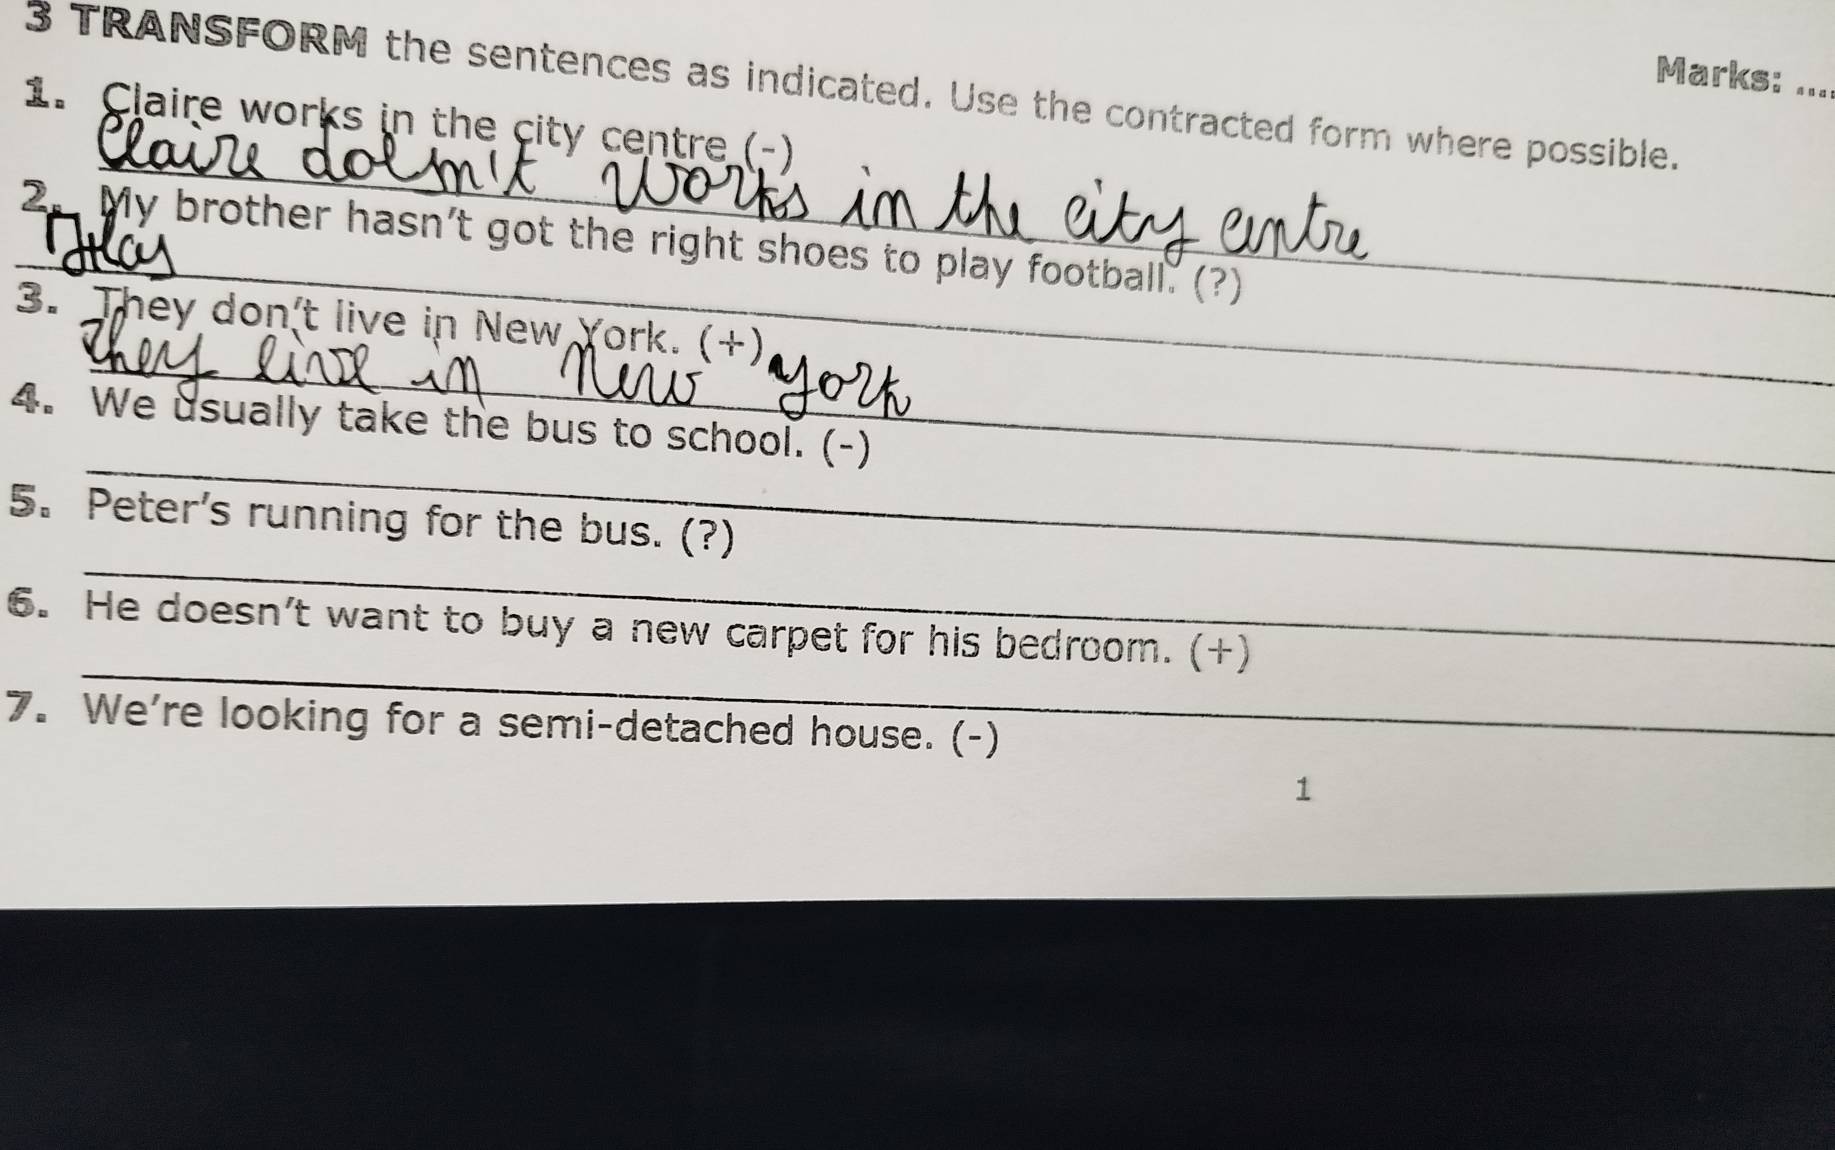 3 TRANSFORM the sentences as indicated. Use the contracted form where possible.
Marks: ....
1. Claire works in the city centre (-)
Claire doemn't works in the city centre
2. My brother hasn't got the right shoes to play football. (?)
Has
3. They don't live in New York. (+)
They live in New York
4. We usually take the bus to school. (-)
5. Peter's running for the bus. (?)
6. He doesn't want to buy a new carpet for his bedroom. (+)
7. We're looking for a semi-detached house. (-)
1